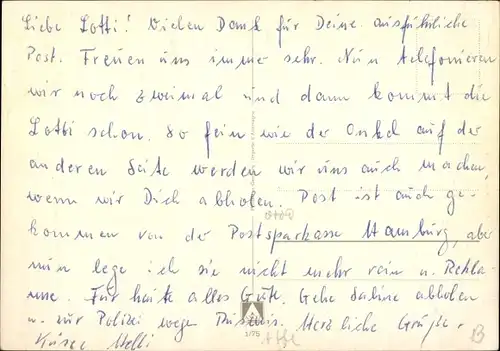 Liebe Lotti! Vielen Dank für Deine ausführliche
Post. Freuen uns immer sehr. Nun telefonieren
wir noch zweimal und dann kommt die
Lotti schon. So fein wie der Onkel auf der
anderen Seite werden wir uns auch machen,
wenn wir Dich abholen. Post ist auch ge-
kommen von der Postsparkasse Hamburg, aber
nun lege ich sie nicht mehr rein u. Rekla-
me. Für heute alles Gute. Gehe Sabine abholen
u. zur Polizei wegen Herzliche Grüße